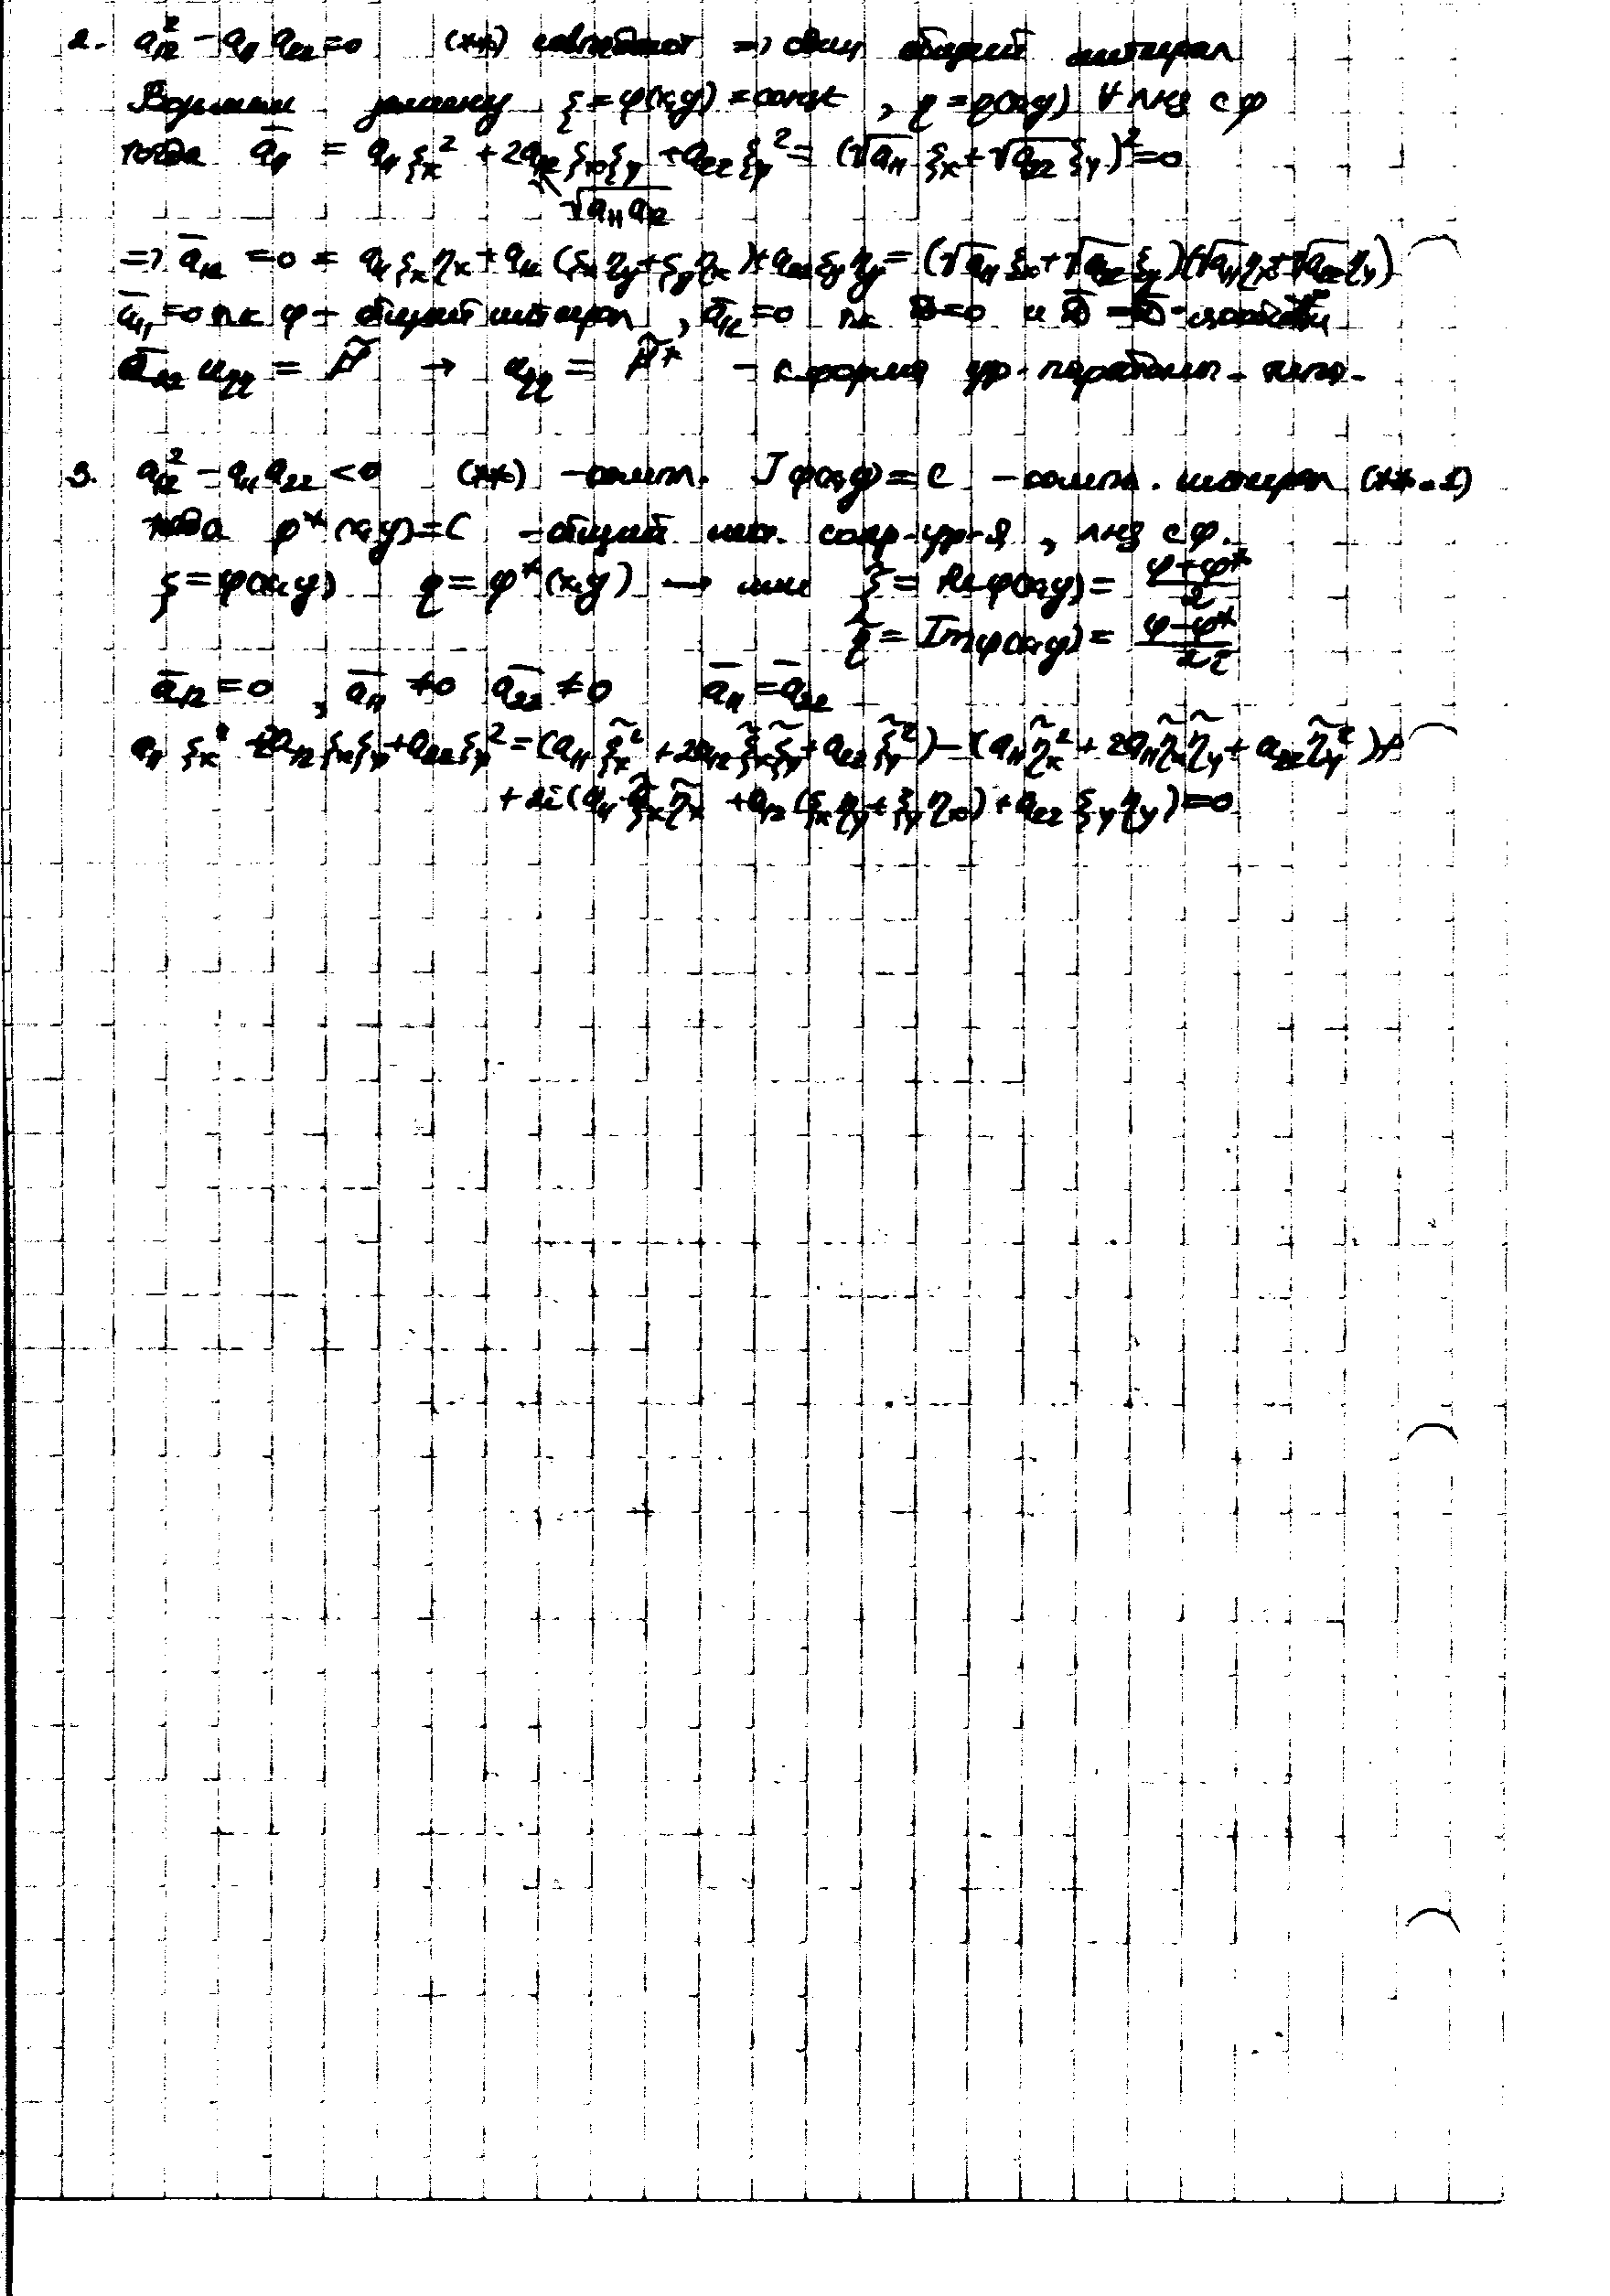 2. a₁₂² − a₁₁ a₂₂ = 0 (**) совпадают ⇒ один общий интеграл
Возьмем замену ξ = φ(x,y) = const , η = η(x,y) ∀ ЛНЗ с φ
тогда ā₁₁ = a₁₁ ξₓ² + 2a₁₂ ξₓ ξ_y + a₂₂ ξ_y² = (√a₁₁ ξₓ + √a₂₂ ξ_y)² = 0
√a₁₁ a₂₂
⇒ ā₁₂ = 0 = a₁₁ ξₓ ηₓ + a₁₂ (ξₓ η_y + ξ_y ηₓ) + a₂₂ ξ_y η_y = (√a₁₁ ξₓ + √a₂₂ ξ_y)(√a₁₁ ηₓ + √a₂₂ η_y)
ā₁₁ = 0 т.к φ – общий интеграл , ā₁₂ = 0 т.к D = 0 и
ā₂₂ u_ηη = F̃ → u_ηη = F̃* – к. форма ур. параболич. типа.
3. a₁₂² − a₁₁ a₂₂ < 0 (**) – компл. J φ(x,y) = C – компл. интеграл (**.1)
тогда φ*(x,y) = C – общий инт. сопр. ур-я , ЛНЗ с φ.
ξ = φ(x,y) η = φ*(x,y) → или ξ̃ = Re φ(x,y) = (φ + φ*)/2
η̃ = Im φ(x,y) = (φ − φ*)/2i
ā₁₂ = 0 , ā₁₁ ≠ 0 ā₂₂ ≠ 0 ā₁₁ = ā₂₂
a₁₁ ξₓ² + 2a₁₂ ξₓ ξ_y + a₂₂ ξ_y² = (a₁₁ ξ̃ₓ² + 2a₁₂ ξ̃ₓ ξ̃_y + a₂₂ ξ̃_y²) − (a₁₁ η̃ₓ² + 2a₁₁ η̃ₓ η̃_y + a₂₂ η̃_y²) +
+ 2i (a₁₁ ξ̃ₓ η̃ₓ + a₁₂ (ξₓ η_y + ξ_y ηₓ) + a₂₂ ξ_y η_y) = 0